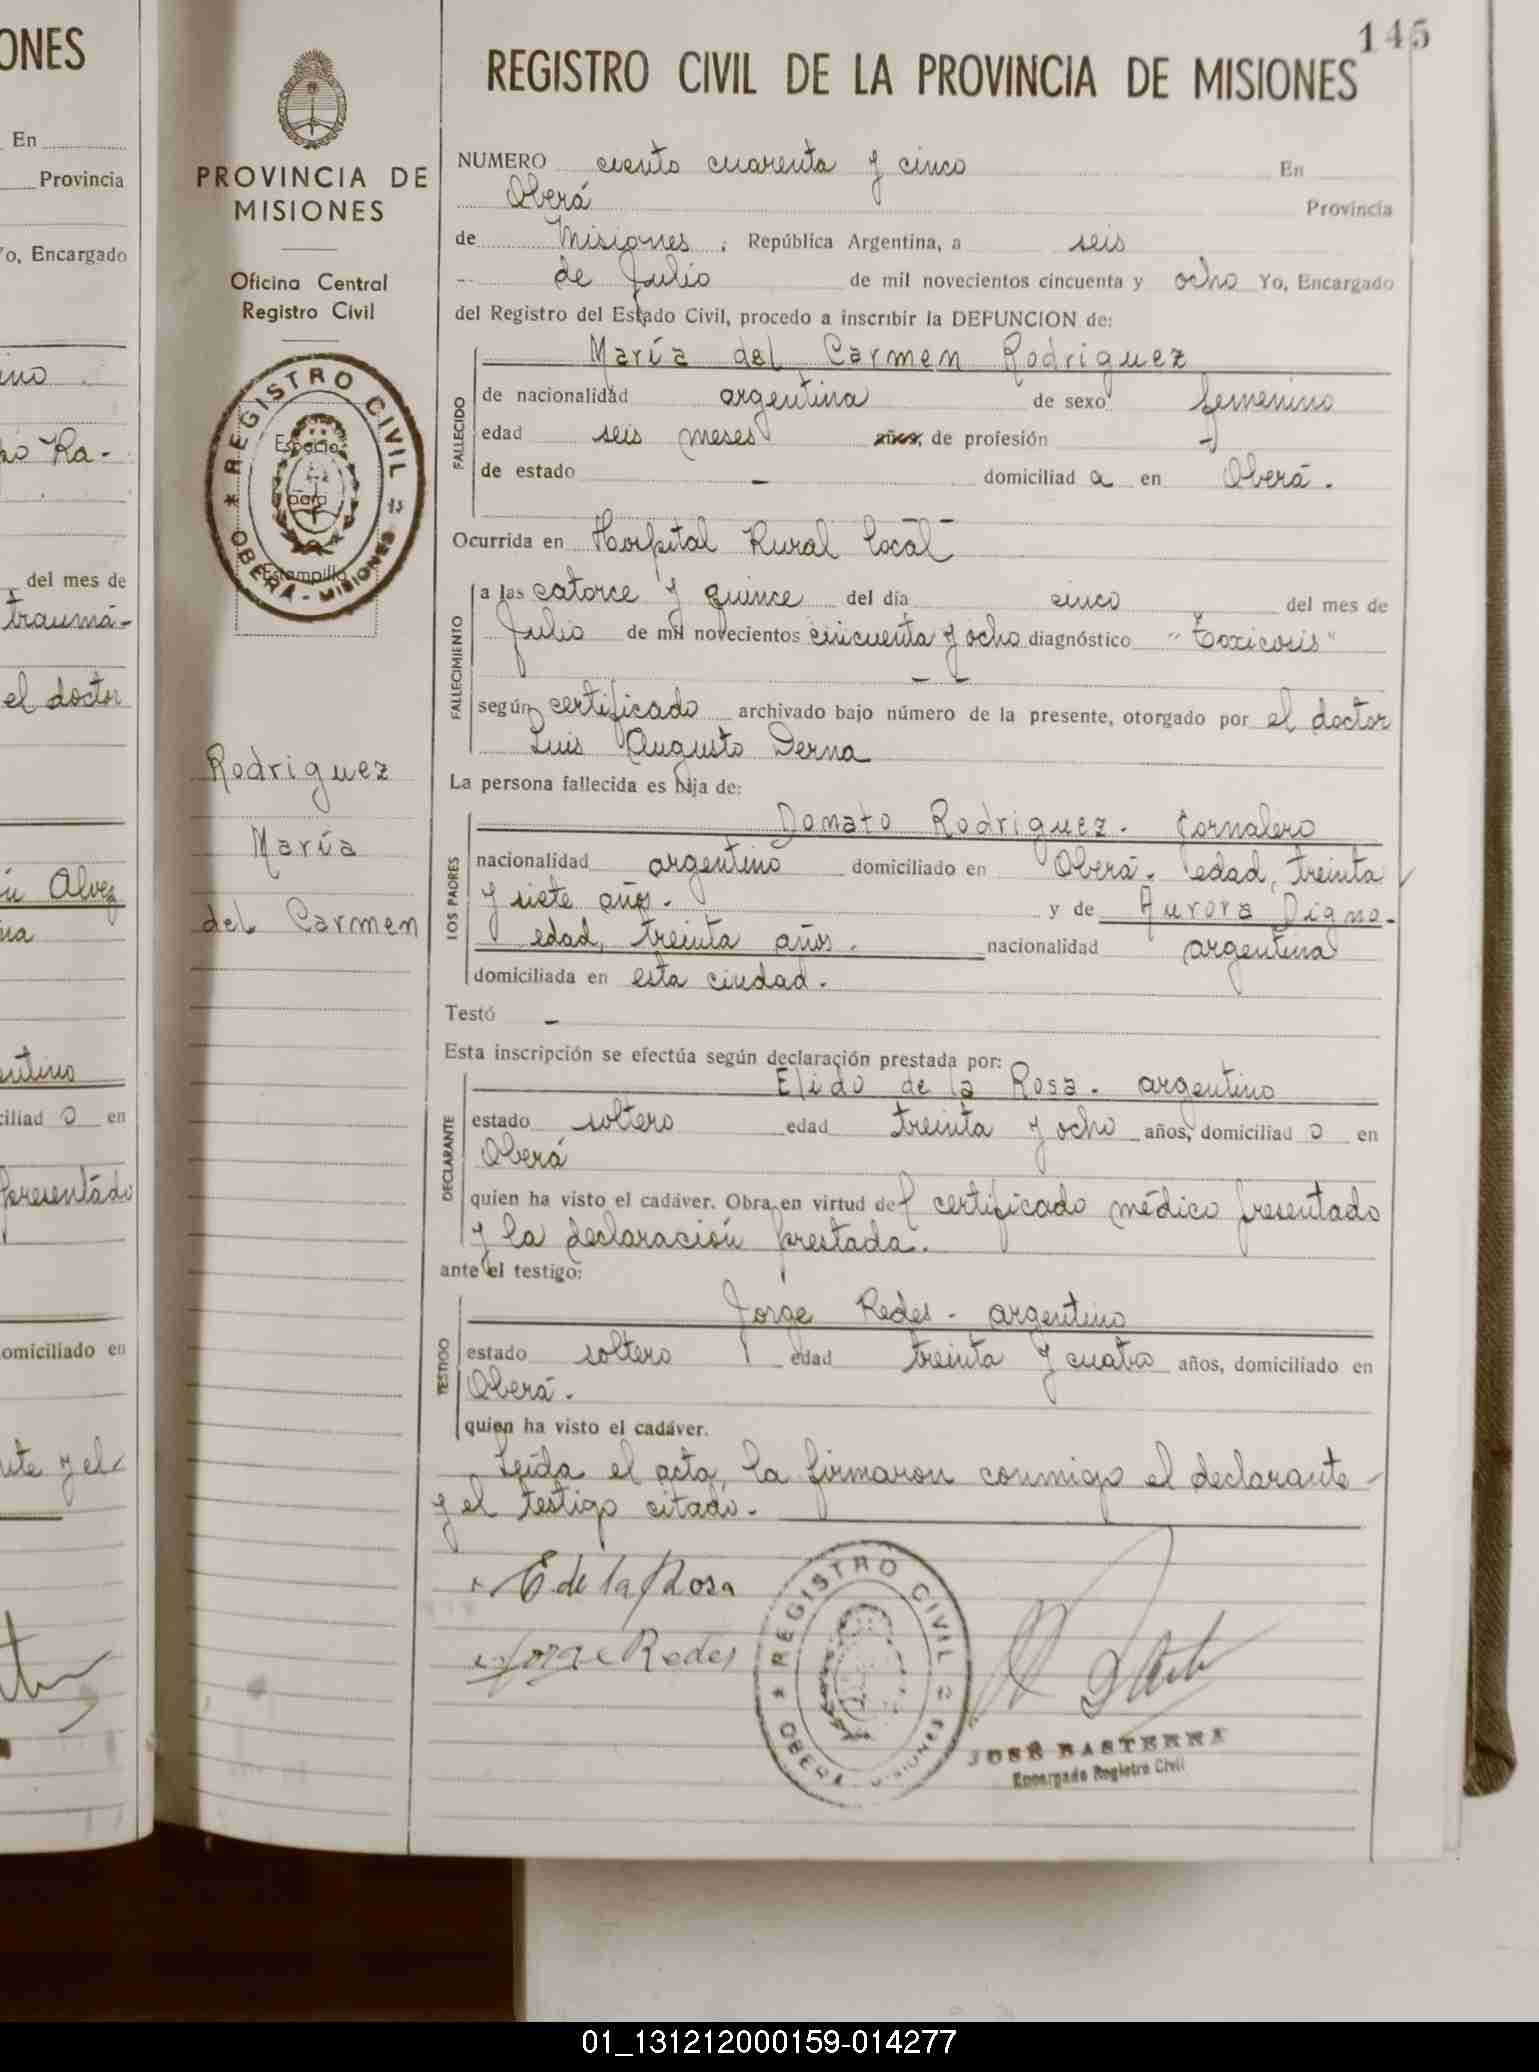 ONES
En
Provincia
Yo, Encargado
ino
no Ra-
del mes de
traumá-
el doctor
Alvez
na
entino
ciliad o en
presentado
domiciliado en
nte y el
145
PROVINCIA DE
MISIONES
Oficina Central
Registro Civil
REGISTRO CIVIL
Espacio
para
Estampilla
* OBERA - MISIONES
Rodriguez
María
del Carmen
REGISTRO CIVIL DE LA PROVINCIA DE MISIONES
NUMERO ciento cuarenta y cinco En
Oberá Provincia
de Misiones, República Argentina, a seis
de Julio de mil novecientos cincuenta y ocho Yo, Encargado
del Registro del Estado Civil, procedo a inscribir la DEFUNCION de:
FALLECIDO
María del Carmen Rodriguez
de nacionalidad argentina de sexo femenino
edad seis meses años, de profesión -
de estado - domiciliad a en Oberá.
Ocurrida en Hospital Rural local
FALLECIMIENTO
a las catorce y quince del día cinco del mes de
Julio de mil novecientos cincuenta y ocho diagnóstico "toxicosis"
según certificado archivado bajo número de la presente, otorgado por el doctor
Luis Augusto Derna
La persona fallecida es hija de:
LOS PADRES
Donato Rodriguez. Jornalero
nacionalidad argentino domiciliado en Oberá. edad, treinta
y siete años. y de Aurora Digna.
edad, treinta años. nacionalidad argentina
domiciliada en esta ciudad.
Testó -
Esta inscripción se efectúa según declaración prestada por:
DECLARANTE
Elido de la Rosa. argentino
estado soltero edad treinta y ocho años, domiciliad o en
Oberá
quien ha visto el cadáver. Obra en virtud del certificado médico presentado
y la declaración prestada.
ante el testigo:
TESTIGO
Jorge Redes - argentino
estado soltero edad treinta y cuatro años, domiciliado en
Oberá.
quien ha visto el cadáver.
Leída el acta, la firmaron conmigo el declarante
y el testigo citado.
E de la Rosa
Jorge Redes
REGISTRO CIVIL
* OBERA - MISIONES
JOSÉ BASTERRA
Encargado Registro Civil
01_131212000159-014277